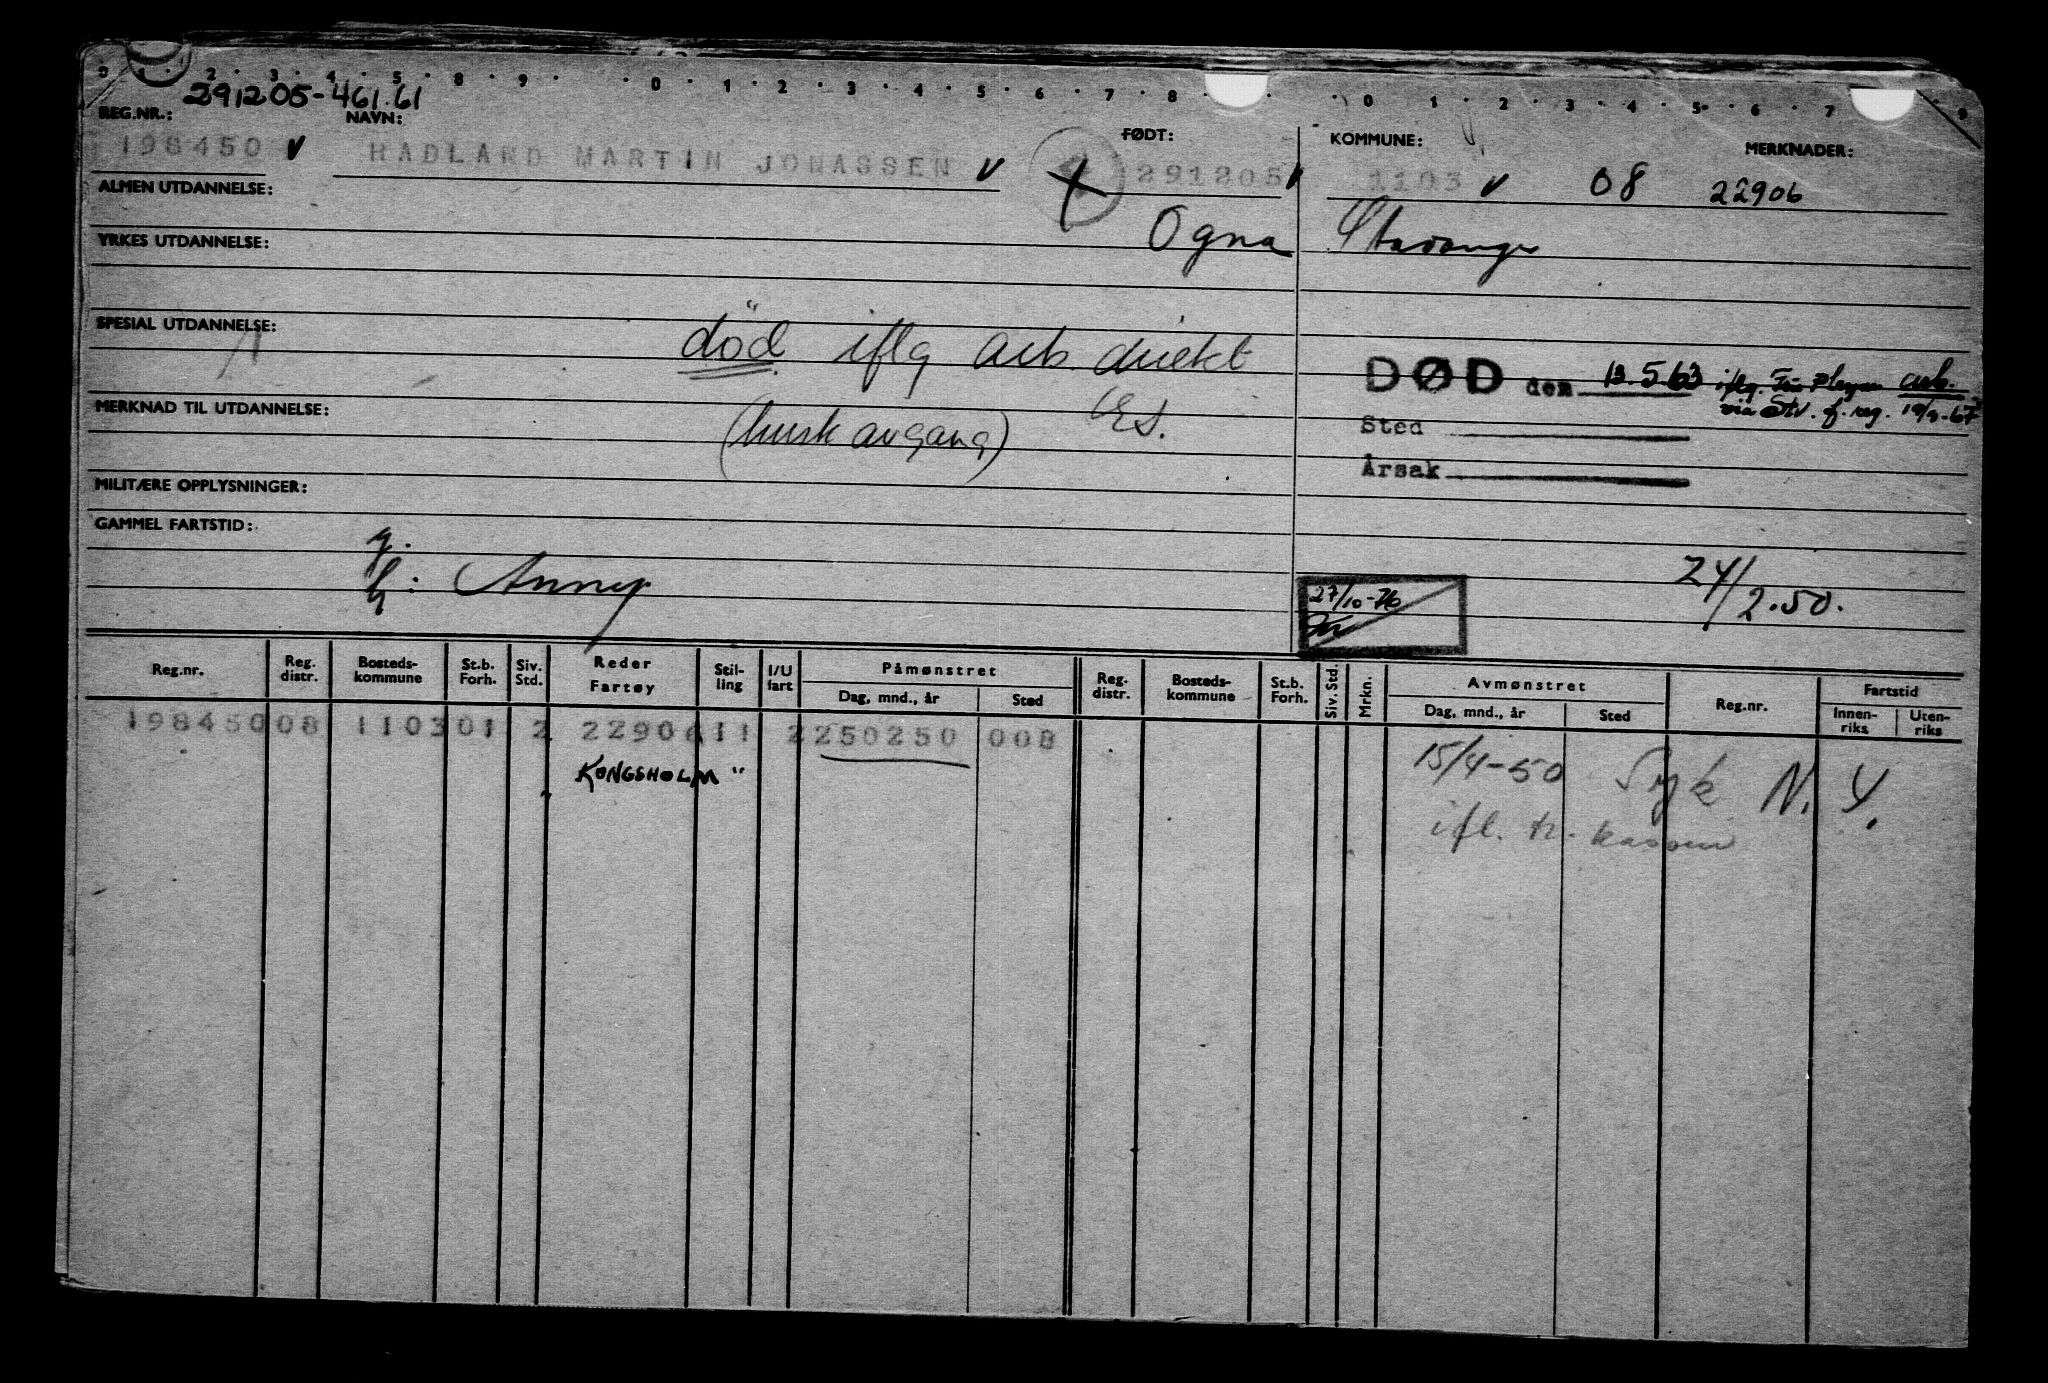 0 1 2 3 4 5 8 9 0 1 2 3 4 5 6 7 8 0 1 2 3 4 5 6 7 9
291205-461.61
REG.NR.: NAVN: FØDT: KOMMUNE: MERKNADER:
198450 v HADLAND MARTIN JONASSEN v 291205 v 1103 v 08 22906
ALMEN UTDANNELSE:
Ogna Stavanger
YRKES UTDANNELSE:
SPESIAL UTDANNELSE:
død iflg arb. direkt
DØD den 12.5.63 iflg. arb.
via Stv. f. reg.
MERKNAD TIL UTDANNELSE:
(husk avgang)
Sted
Årsak
MILITÆRE OPPLYSNINGER:
GAMMEL FARTSTID:
g.
h: Anny
27/10-76
24/2.50.
Reg.nr. Reg. distr. Bosteds-kommune St.b. Forh. Siv. Std. Reder Fartøy Stil-ling I/U fart Påmønstret Dag, mnd., år Sted Reg. distr. Bosteds-kommune St.b. Forh. Siv. Std. Mrkn. Avmønstret Dag, mnd., år Sted Reg.nr. Fartstid Innen-riks Uten-riks
198450 08 1103 01 2 22906 11 2 250250 008
15/4-50 Syk N.Y.
KONGSHOLM "
ifl. tr. kassen